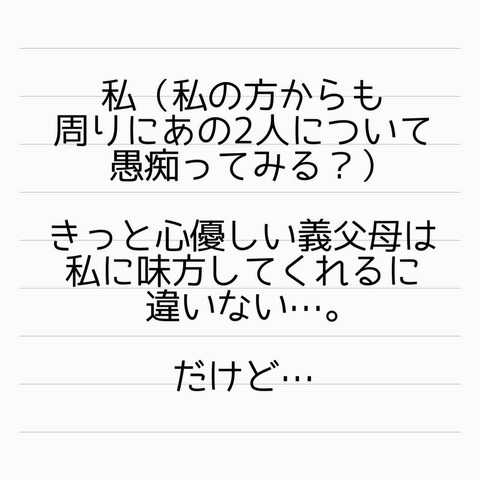 私（私の方からも
周りにあの2人について
愚痴ってみる？）
きっと心優しい義父母は
私に味方してくれるに
違いない…。
だけど…